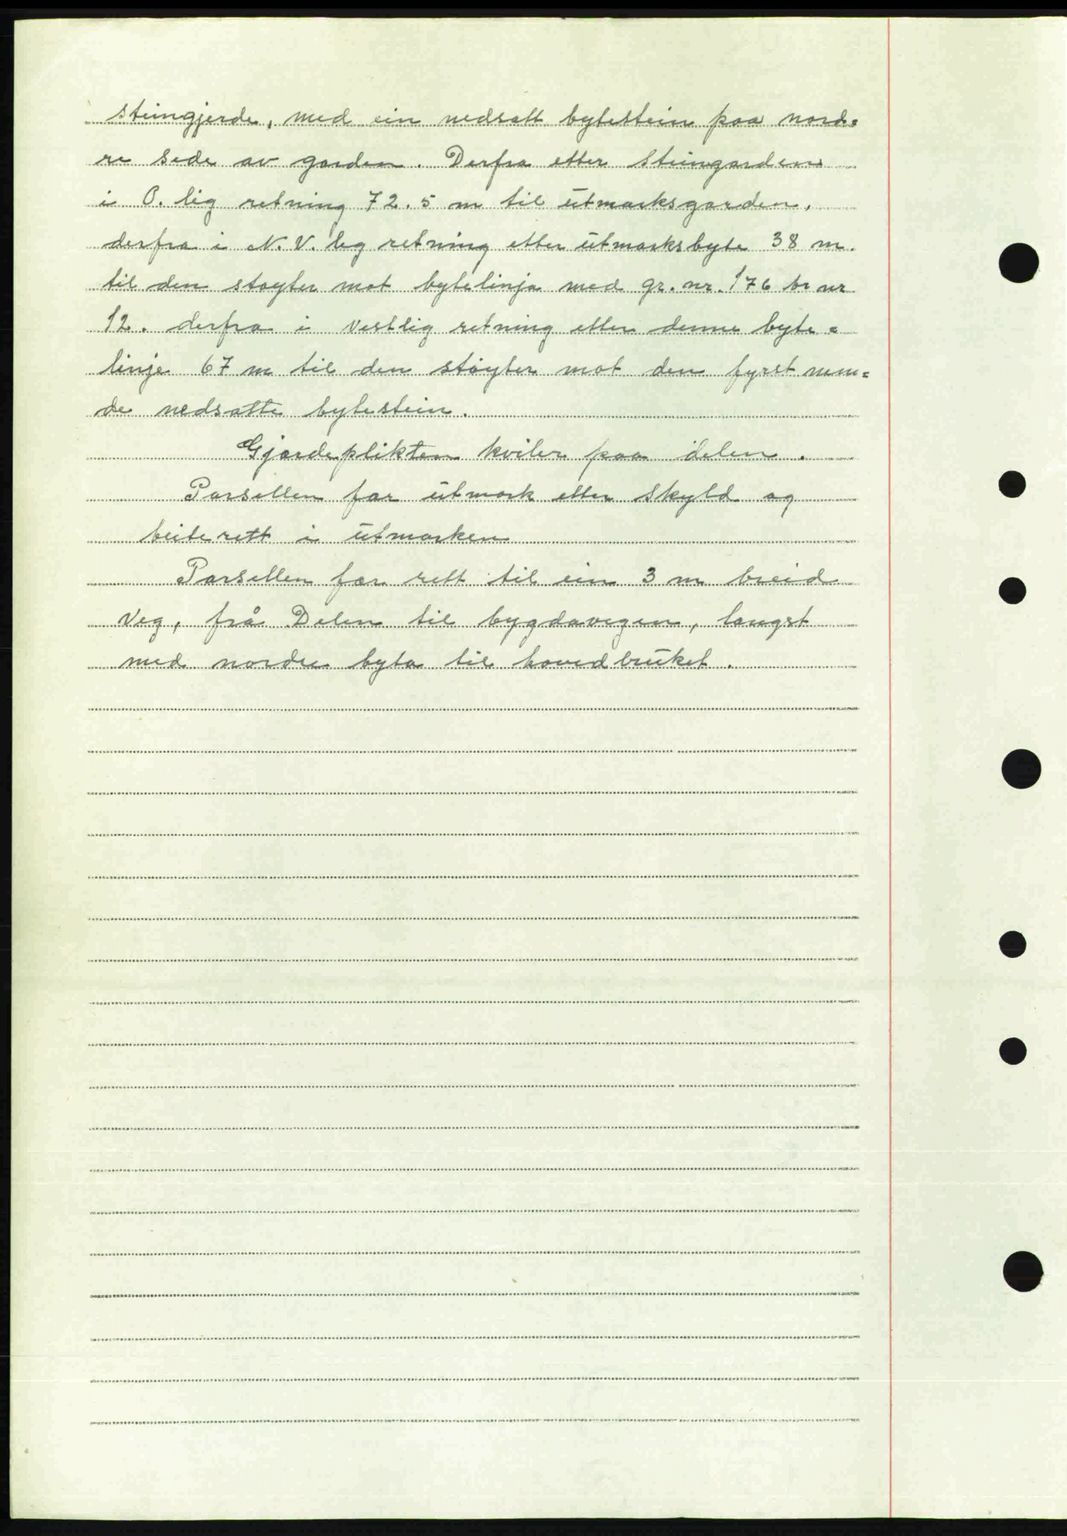 steingjerde, med ein nedsatt bytestein paa nord=
re side av garden. Derfra etter steingarden
i O. lig retning 72.5 m til utmarksgarden,
derfra i N.V. leg retning etter utmarksbyte 38 m.
til den støyter mot bytelinja med gr. nr. 176 br nr
12. derfra i vestlig retning etter denne byte=
linje 67 m til den støyter mot den fyrst nem=
de nedsatte bytestein.
Gjærdeplikten kviler paa delen.
Parsellen fær utmork etter skyld og
beiterett i utmarken
Parsellen fær rett til ein 3 m breid
veg, frå Delen til bygdavegen, langst
med nordre byta til hovedbruket.